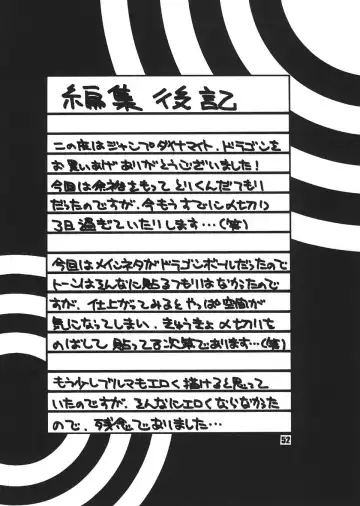 編集後記
この度はジャンプダイナマイト、ドラゴンを
お買いあげありがとうございました!
今回は余裕をもってとりくんだつもり
だったのですが、今もうすでに〆切り
3日過ぎていたりします…(笑)
今回はメインネタがドラゴンボールだったので
トーンはそんなに貼るつもりはなかったので
すが、仕上がてみるとやっぱ空間が
気になってしまい、きゅうきょ〆切りを
のばして貼ってる次第であります…(笑)
もう少しブルマもエロく描けると思って
いたのですが、そんなにエロくならなかった
ので、残念でありました…
52